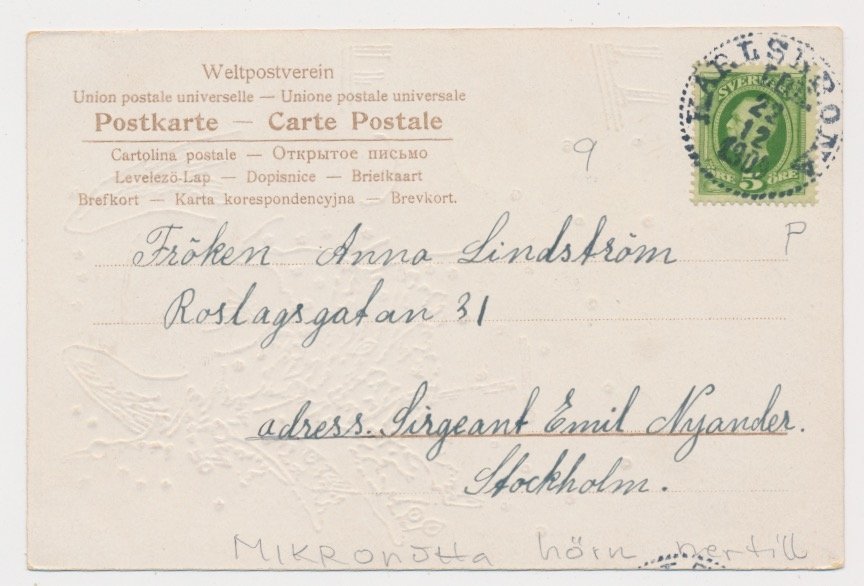 Weltpostverein
Union postale universelle — Unione postale universale
Postkarte — Carte Postale
Cartolina postale — Открытое письмо
Levelezö-Lap — Dopisnice — Briefkaart
Brefkort — Karta korespondencyjna — Brevkort.
KARLSKRONA
SVERIGE
12
5 ÖRE
9
P
Fröken Anna Lindström
Roslagsgatan 31
adress. Sirgeant Emil Nyander.
Stockholm.
MIKRONJtta hörn nertill